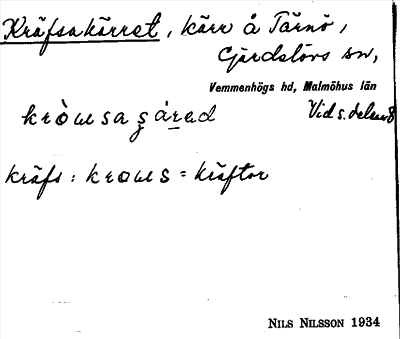 Kräfsakärret, kärr å Tärnö,
Gärdslövs sn,
Vemmenhögs hd, Malmöhus län
kròusa ʂáred Vid s. delen 8
kräfs : krous = kräftor
NILS NILSSON 1934